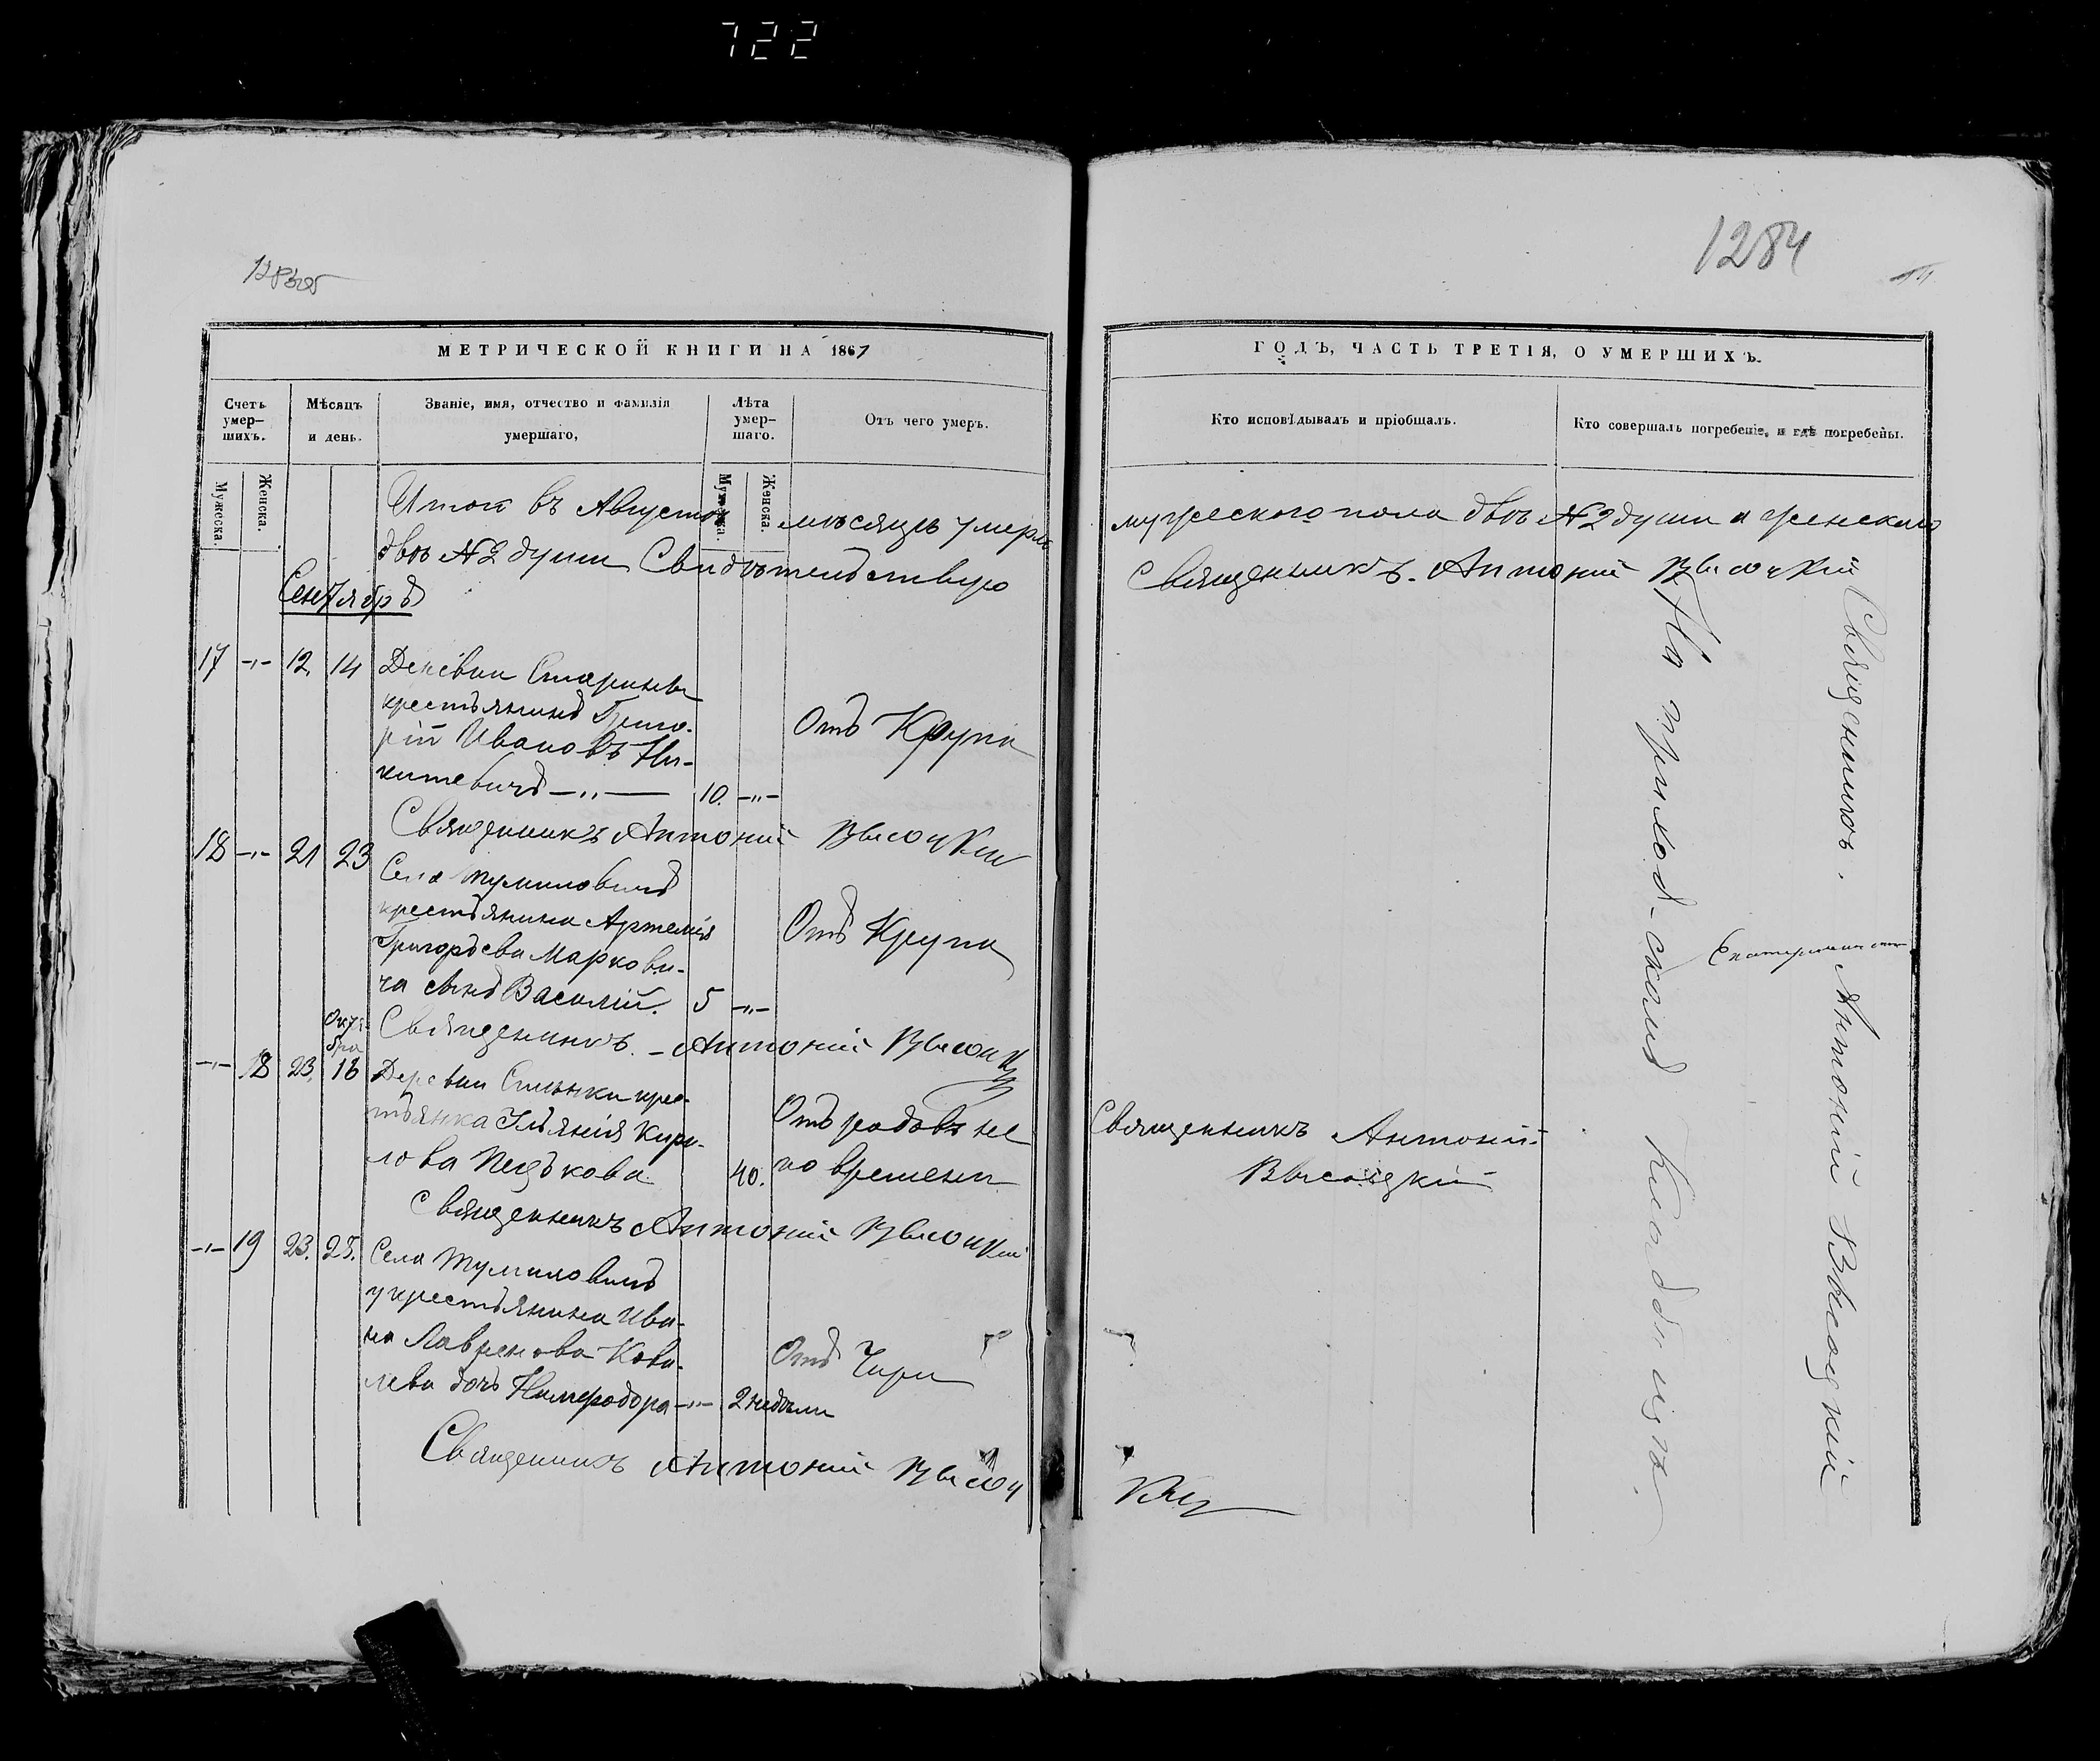 722
1284
МЕТРИЧЕСКОЙ КНИГИ НА 1867
ГОДЪ, ЧАСТЬ ТРЕТІЯ, О УМЕРШИХЪ.
Счетъ умер-
шихъ.
Мѣсяцъ
и день.
Званіе, имя, отчество и фамилія
умершаго,
Лѣта
умер-
шаго.
Отъ чего умеръ.
Кто исповѣдывалъ и пріобщалъ.
Кто совершалъ погребеніе, и гдѣ погребены.
Мужеска.
Женска.
Мужеска.
Женска.
Итого въ Августѣ мѣсяцѣ умерло мужескаго пола двѣ №2 души и женскаго
двѣ №2 души Свидѣтельствую Священникъ Антоній Высоцкій
Сентябрь
17 -„- 12. 14 Деревни
крестьянинъ Григо-
рій Ивановъ Ни-
китевичъ -„- 10. -„- Отъ Крупа
Священникъ Антоній Высоцкій
18 -„- 21 23
Села Тумиловичъ
крестьянина Артемія
Григорьева Маркови-
ча сынъ Василій. 5 -„- Отъ Крупа
Священникъ Антоній Высоцкій
Октя-
бра
-„- 18 23. 16 Деревни крес-
тьянка Ульянія Кири-
лова 40.
Отъ родовъ не
по времени
Священникъ Антоній
Высоцкій
Священникъ Антоній Высоцкій
-„- 19 23. 25. Села Тумиловичъ
у крестьянина Ива-
на Лавренова Кова-
лева дочь -„- 2 недѣли
Отъ Чири
Священникъ Антоній Высоцкій
На приход-скомъ кладбищѣ.
Священникъ Антоній Высоцкій